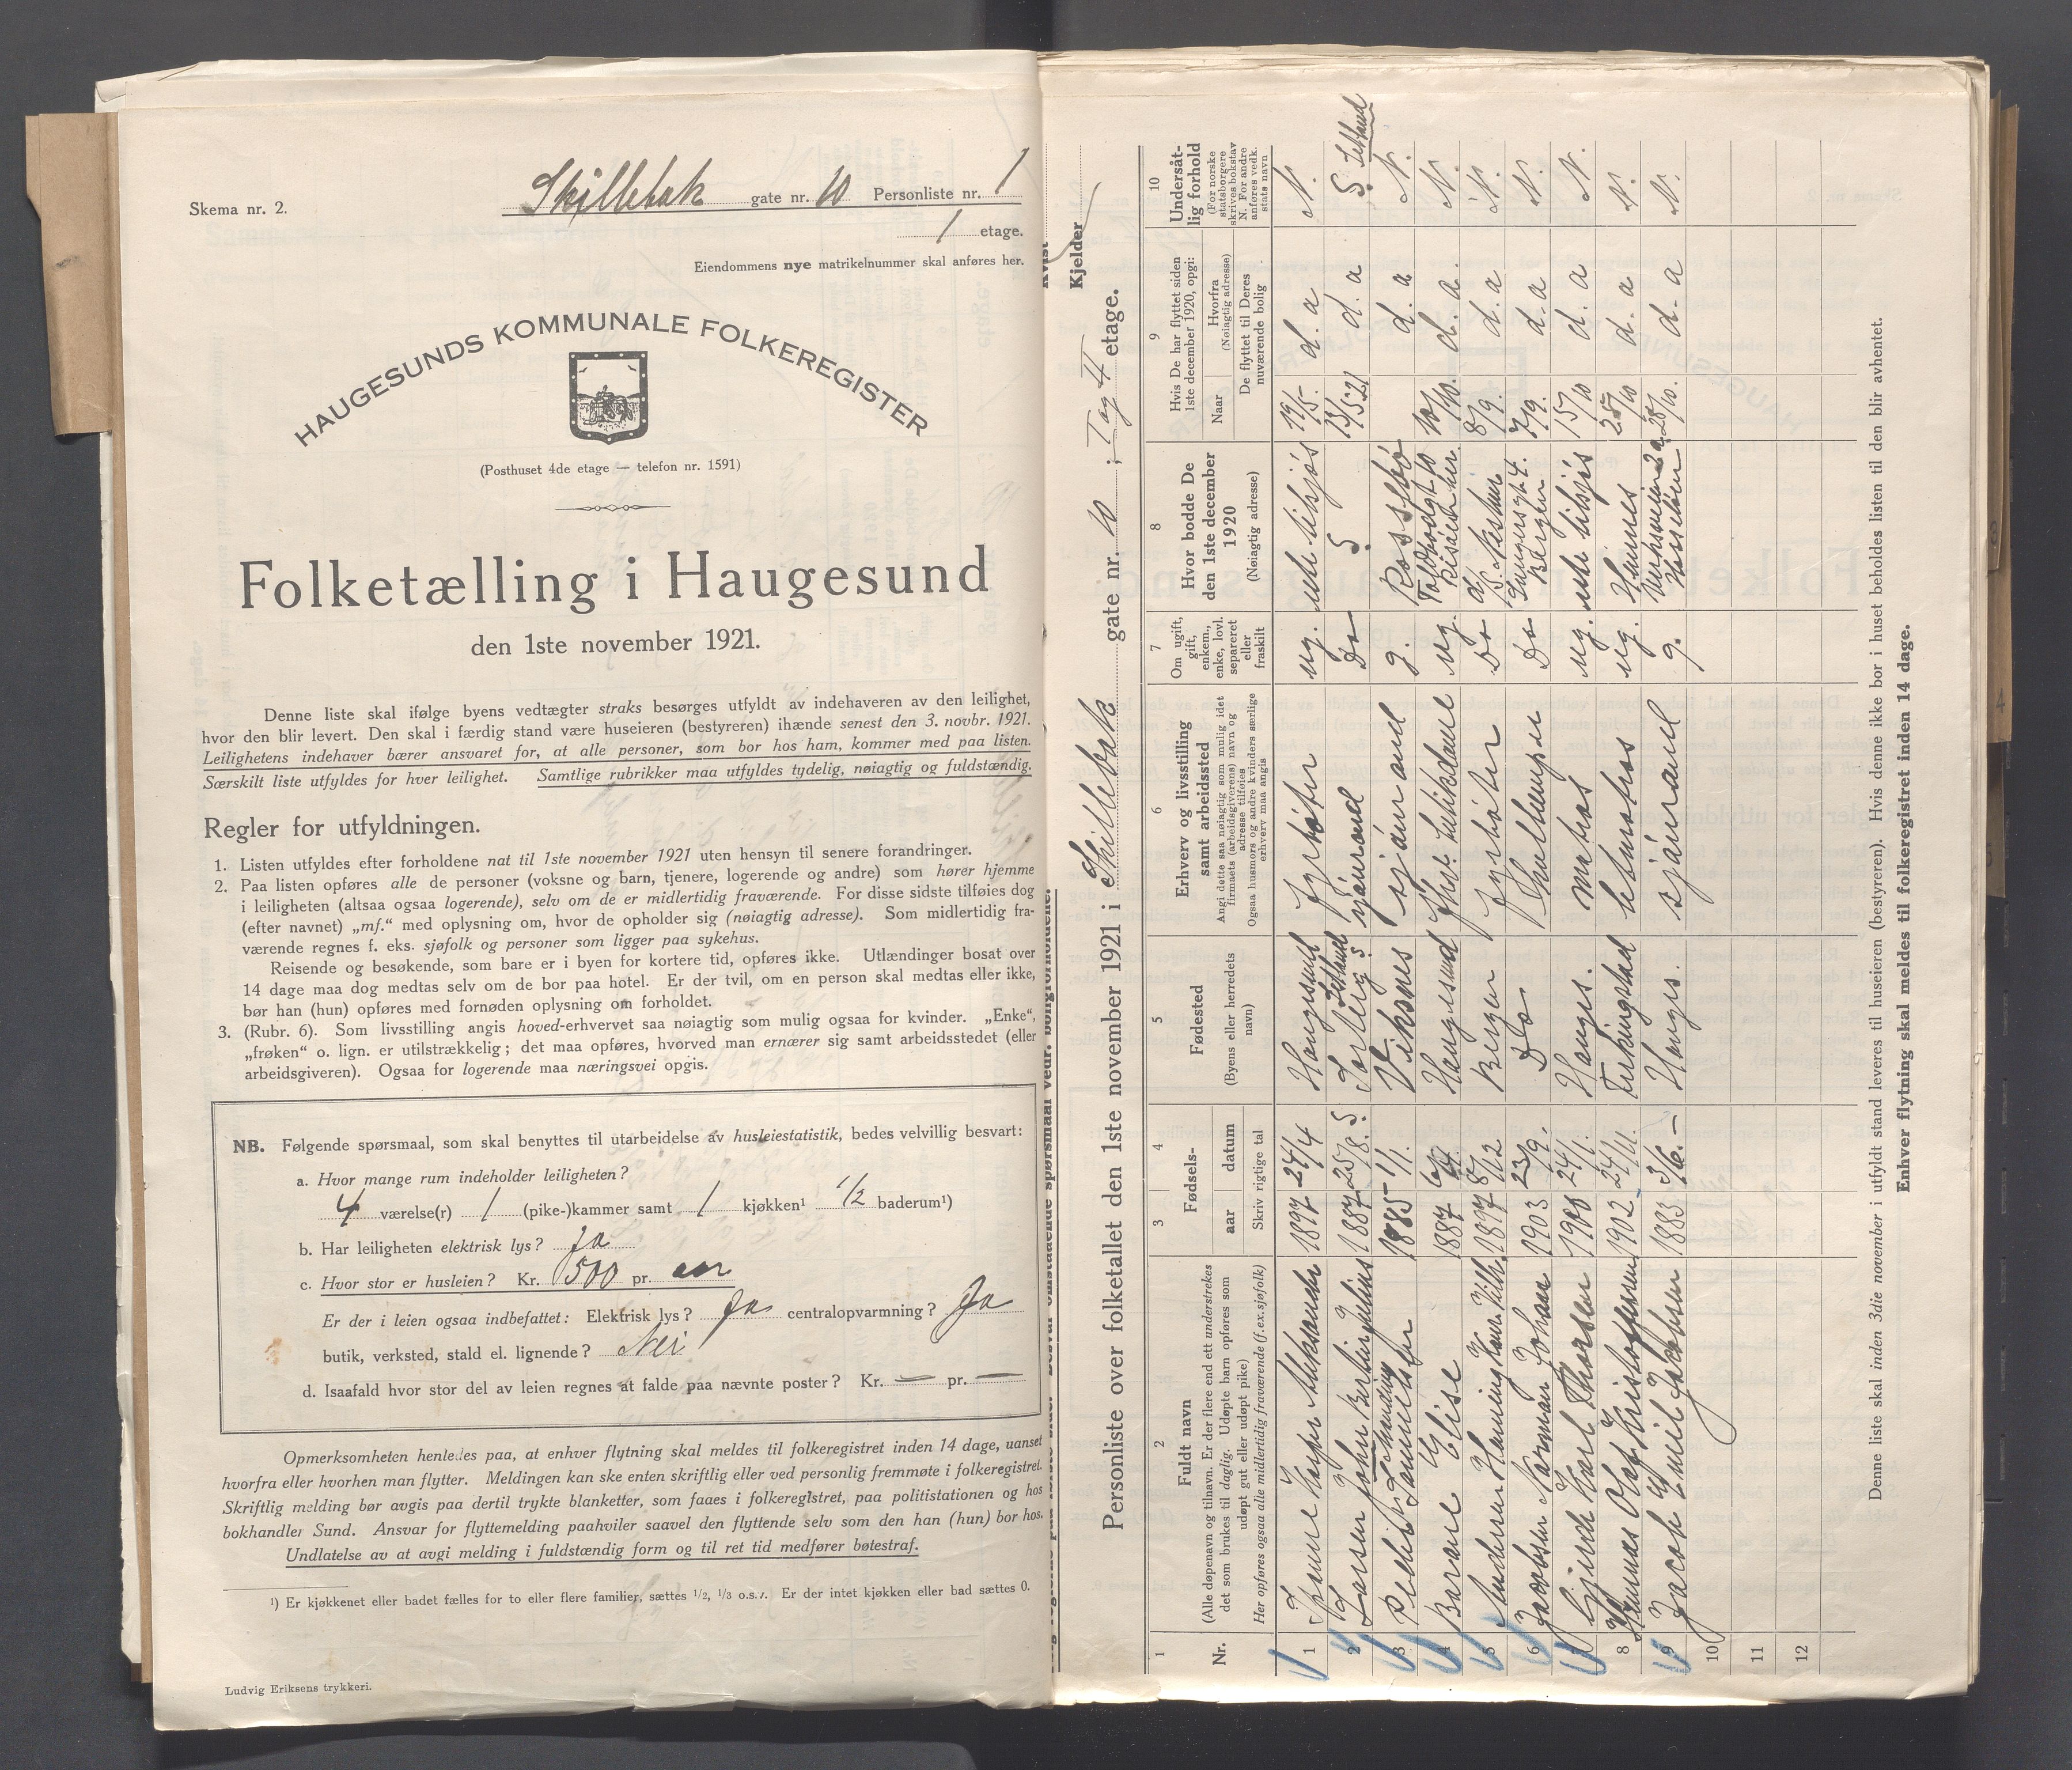 Skema nr. 2.
Skillebæk gate nr. 10 Personliste nr. 1
1 etage.
Eiendommens nye matrikelnummer skal anføres her.
HAUGESUNDS KOMMUNALE FOLKEREGISTER
(Posthuset 4de etage — telefon nr. 1591)
Folketælling i Haugesund
den 1ste november 1921.
Denne liste skal ifølge byens vedtægter straks besørges utfyldt av indehaveren av den leilighet,
hvor den blir levert. Den skal i færdig stand være huseieren (bestyreren) ihænde senest den 3. novbr. 1921.
Leilighetens indehaver bærer ansvaret for, at alle personer, som bor hos ham, kommer med paa listen.
Særskilt liste utfyldes for hver leilighet. Samtlige rubrikker maa utfyldes tydelig, nøiagtig og fuldstændig.
Regler for utfyldningen.
1. Listen utfyldes efter forholdene nat til 1ste november 1921 uten hensyn til senere forandringer.
2. Paa listen opføres alle de personer (voksne og barn, tjenere, logerende og andre) som hører hjemme
i leiligheten (altsaa ogsaa logerende), selv om de er midlertidig fraværende. For disse sidste tilføies dog
(efter navnet) „mf.“ med oplysning om, hvor de opholder sig (nøiagtig adresse). Som midlertidig fra-
værende regnes f. eks. sjøfolk og personer som ligger paa sykehus.
Reisende og besøkende, som bare er i byen for kortere tid, opføres ikke. Utlændinger bosat over
14 dage maa dog medtas selv om de bor paa hotel. Er der tvil, om en person skal medtas eller ikke,
bør han (hun) opføres med fornøden oplysning om forholdet.
3. (Rubr. 6). Som livsstilling angis hoved-erhvervet saa nøiagtig som mulig ogsaa for kvinder. „Enke“,
„frøken“ o. lign. er utilstrækkelig; det maa opføres, hvorved man ernærer sig samt arbeidsstedet (eller
arbeidsgiveren). Ogsaa for logerende maa næringsvei opgis.
NB. Følgende spørsmaal, som skal benyttes til utarbeidelse av husleiestatistik, bedes velvillig besvart:
a. Hvor mange rum indeholder leiligheten?
4 værelse(r) 1 (pike-)kammer samt 1 kjøkken¹ 1/2 baderum¹)
b. Har leiligheten elektrisk lys? Ja
c. Hvor stor er husleien? Kr. 1500 pr. aar
Er der i leien ogsaa indbefattet: Elektrisk lys? Ja centralopvarmning? Ja
butik, verksted, stald el. lignende? Nei
d. Isaafald hvor stor del av leien regnes at falde paa nævnte poster? Kr. — pr. —
Opmerksomheten henledes paa, at enhver flytning skal meldes til folkeregistret inden 14 dage, uanset
hvorfra eller hvorhen man flytter. Meldingen kan ske enten skriftlig eller ved personlig fremmøte i folkeregistret.
Skriftlig melding bør avgis paa dertil trykte blanketter, som faaes i folkeregistret, paa politistationen og hos
bokhandler Sund. Ansvar for flyttemelding paahviler saavel den flyttende selv som den han (hun) bor hos.
Undlatelse av at avgi melding i fuldstændig form og til ret tid medfører bøtestraf.
¹) Er kjøkkenet eller badet fælles for to eller flere familier, sættes 1/2, 1/3 o.s.v. Er der intet kjøkken eller bad sættes 0.
Ludvig Eriksens trykkeri.
Kvist
Kjelder
Personliste over folketallet den 1ste november 1921 i Skillebæk gate nr. 10 ; 4 etage.
1 2 3 4 5 6 7 8 9 10
Nr.
Fuldt navn
(Alle døpenavn og tilnavn. Er der flere end ett understrekes
det som brukes til daglig. Udøpte barn opføres som
udøpt gut eller udøpt pike)
Her opføres ogsaa alle midlertidig fraværende (f.ex. sjøfolk)
Fødsels-
aar datum
Skriv rigtige tal
Fødested
(Byens eller herredets
navn)
Erhverv og livsstilling
samt arbeidssted
Angi dette saa nøiagtig som mulig idet
firmaets (arbeidsgiverens) navn og
adresse tilføies
Ogsaa husmors og andre kvinders særlige
erhverv maa angis
Om ugift,
gift,
enkem.,
enke, lovl.
separeret
eller
fraskilt
Hvor bodde De
den 1ste december
1920
(Nøiagtig adresse)
Hvis De har flyttet siden
1ste december 1920, opgi:
Naar Hvorfra
(Nøiagtig adresse)
De flyttet til Deres
nuværende bolig
Undersåt-
lig forhold
(For norske
statsborgere
skrives bokstav
N. For andre
anføres vedk.
stats navn
1 Kasper Aleksander 1897 24/4 Haugesund fyrbøter ug. 19/5. d. a N.
2 Larsen John Berlin Julius 1887 25/8. sjømand Do 13/5 21 d. a
3 1885 1/1. Viksnes sjømand g. Rossebø d. a N.
4 Elise 1887 Haugesund ug. 10/10. d. a. N.
5 Andersen Henning 1897 8/12 Bergen fyrbøter Do 8/9. d. a N.
6 Jacobsen Normann Johan 1903 23/9. Do Do Bergen 7/9. d. a N.
7 Gjerde Karl Thorsen 1900 24/1. Hauges. matros ug. 15/10 d. a N.
8 Olaf Kristoffersen 1902 24/11. letmatros ug. 25/10 d. a N.
9 Jacob Emil Jakobsen 1883 3/6. — Hauges. sjømand g. 28/10. d. a N.
10
11
12
Denne liste skal inden 3die november i utfyldt stand leveres til huseieren (bestyreren). Hvis denne ikke bor i huset beholdes listen til den blir avhentet.
Enhver flytning skal meldes til folkeregistret inden 14 dage.